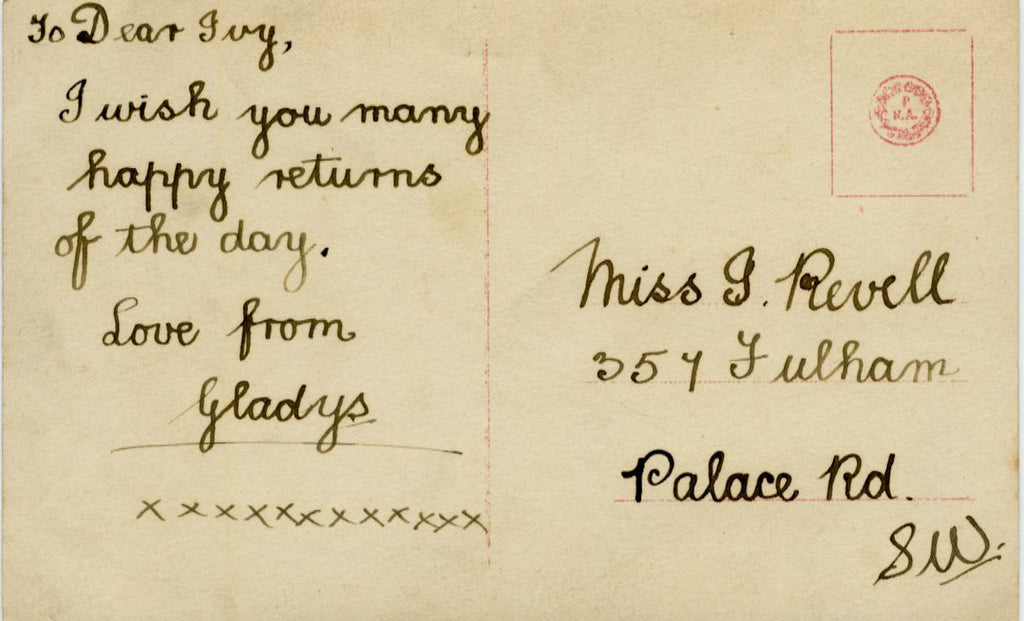 To Dear Ivy,
I wish you many
happy returns
of the day.
Love from
Gladys
xxxxxxxxxxxx
P
N.A.
Miss I. Revell
357 Fulham
Palace Rd.
SW.